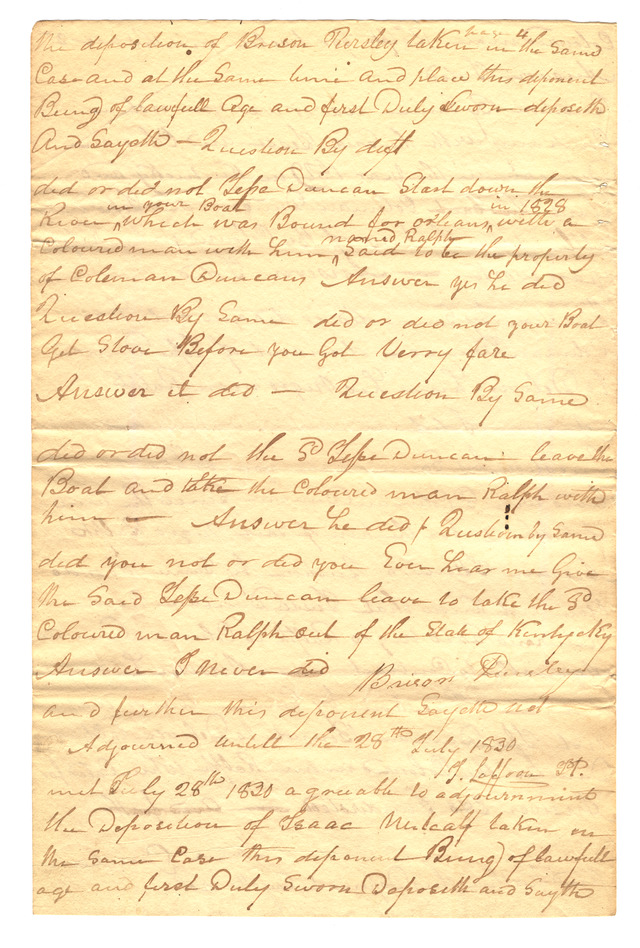 page 4
the deposition of Brison Pursley taken in the Same
Case and at the Same time and place this deponent
Being of lawfull Age and first Duly Sworn deposeth
And Sayeth — Question By deft
did or did not Jesse Duncan Start down the
in your Boat in 1828
River which was Bound for orleans with a
named Ralph
Coloured man with him Said to be the property
of Coleman Duncans Answer yes he did
Question By Same did or did not your Boat
Get Stove Before you Got Verry fare
Answer it did — Question By Same
did or did not the Sd Jesse Duncan leave the
Boat and take the Coloured man Ralph with
him — Answer he did Question by Same
did you not or did you Ever hear me Give
the Said Jesse Duncan leave to take the Sd
Coloured man Ralph out of the State of Kentucky
Answer I never did Brison Pursley
and further this deponent Sayeth not
Adjourned untill the 28th July 1830
J. Laffoon JP.
met July 28th 1830 agreeable to adjournment
the Deposition of Isaac Metcalf taken in
the same Case this deponent Being of lawfull
age and first Duly Sworn Deposeth and Sayth